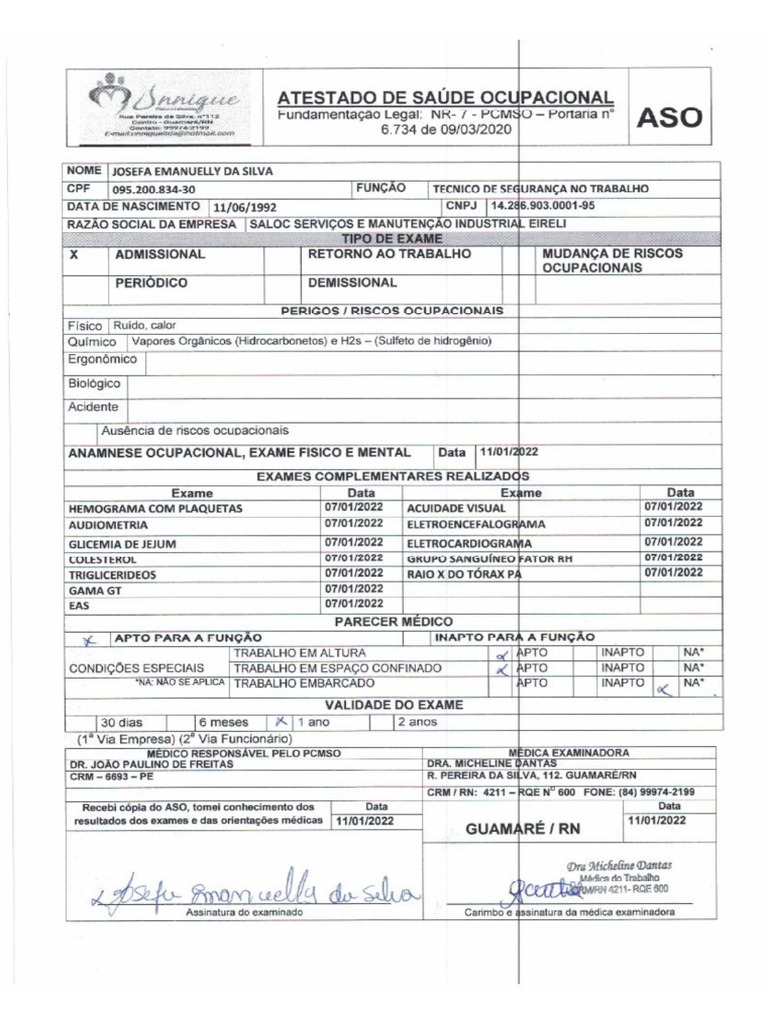 Unnique
Rua Pereira da Silva, nº112
Centro - Guamaré/RN
Contato: 99974-2199
E-mail:unniqueltda@hotmail.com
ATESTADO DE SAÚDE OCUPACIONAL
Fundamentação Legal: NR- 7 - PCMSO – Portaria n°
6.734 de 09/03/2020
ASO
NOME JOSEFA EMANUELLY DA SILVA
CPF 095.200.834-30 FUNÇÃO TECNICO DE SEGURANÇA NO TRABALHO
DATA DE NASCIMENTO 11/06/1992 CNPJ 14.286.903.0001-95
RAZÃO SOCIAL DA EMPRESA SALOC SERVIÇOS E MANUTENÇÃO INDUSTRIAL EIRELI
TIPO DE EXAME
X ADMISSIONAL RETORNO AO TRABALHO MUDANÇA DE RISCOS
OCUPACIONAIS
PERIÓDICO DEMISSIONAL
PERIGOS / RISCOS OCUPACIONAIS
Físico Ruido, calor
Químico Vapores Orgânicos (Hidrocarbonetos) e H2s – (Sulfeto de hidrogênio)
Ergonômico
Biológico
Acidente
Ausência de riscos ocupacionais
ANAMNESE OCUPACIONAL, EXAME FISICO E MENTAL Data 11/01/2022
EXAMES COMPLEMENTARES REALIZADOS
Exame Data Exame Data
HEMOGRAMA COM PLAQUETAS 07/01/2022 ACUIDADE VISUAL 07/01/2022
AUDIOMETRIA 07/01/2022 ELETROENCEFALOGRAMA 07/01/2022
GLICEMIA DE JEJUM 07/01/2022 ELETROCARDIOGRAMA 07/01/2022
COLESTEROL 07/01/2022 GRUPO SANGUÍNEO FATOR RH 07/01/2022
TRIGLICERIDEOS 07/01/2022 RAIO X DO TÓRAX PA 07/01/2022
GAMA GT 07/01/2022
EAS 07/01/2022
PARECER MÉDICO
x APTO PARA A FUNÇÃO INAPTO PARA A FUNÇÃO
TRABALHO EM ALTURA x APTO INAPTO NA*
CONDIÇÕES ESPECIAIS TRABALHO EM ESPAÇO CONFINADO x APTO INAPTO NA*
*NA: NÃO SE APLICA TRABALHO EMBARCADO APTO INAPTO x NA*
VALIDADE DO EXAME
30 dias 6 meses x 1 ano 2 anos
(1ª Via Empresa) (2ª Via Funcionário)
MÉDICO RESPONSÁVEL PELO PCMSO MÉDICA EXAMINADORA
DR. JOÃO PAULINO DE FREITAS DRA. MICHELINE DANTAS
CRM – 6693 – PE R. PEREIRA DA SILVA, 112. GUAMARÉ/RN
CRM / RN: 4211 – RQE Nº 600 FONE: (84) 99974-2199
Recebi cópia do ASO, tomei conhecimento dos Data
resultados dos exames e das orientações médicas 11/01/2022
GUAMARÉ / RN
Data
11/01/2022
Dra Micheline Dantas
Médica do Trabalho
CRM/RN 4211- RQE 600
x Josefa Emanuelly da Silva
Assinatura do examinado
Carimbo e assinatura da médica examinadora